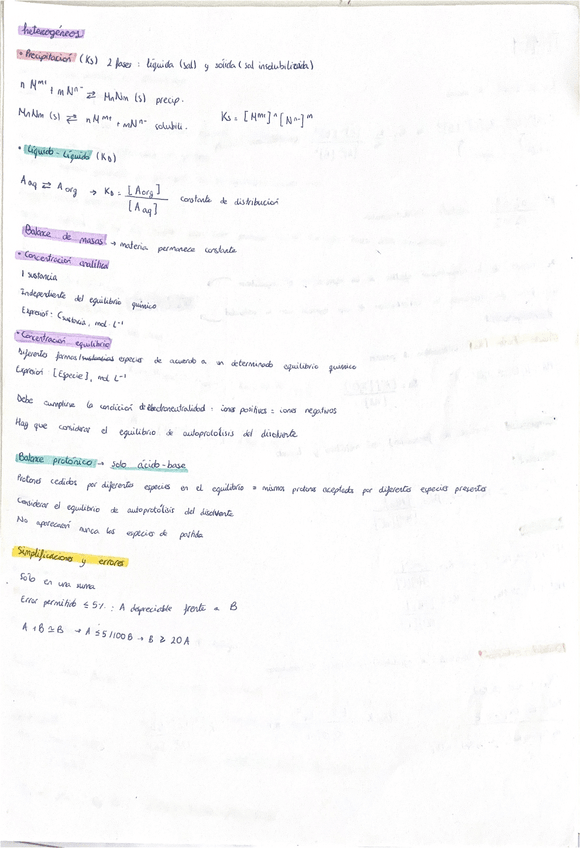 heterogéneos
• Precipitación (Ks) 2 fases : líquida (sal) y sólida (sal insolubilizada)
n M^m+ + m N^n- ⇄ MnNm (s) precip.
MnNm (s) ⇄ n M^m+ + m N^n- solubili. Ks = [M^m+]^n [N^n-]^m
• Líquido - líquido (KD)
A aq ⇄ A org → KD = [A org] / [A aq] constante de distribución
Balance de masas → materia permanece constante
• Concentración analítica
1 sustancia
Independiente del equilibrio químico
Expresión: C sustancia, mol · L⁻¹
• Concentración equilibrio
Diferentes formas/sustancias especies de acuerdo a un determinado equilibrio químico
Expresión: [Especie], mol L⁻¹
Debe cumplirse la condición de electroneutralidad : iones positivos = iones negativos
Hay que considerar el equilibrio de autoprotólisis del disolvente
Balance protónico → solo ácido-base
Protones cedidos por diferentes especies en el equilibrio = mismos protones aceptados por diferentes especies presentes
Considerar el equilibrio de autoprotólisis del disolvente
No aparecerán nunca las especies de partida
Simplificaciones y errores
Solo en una suma
Error permitido ≤ 5% : A depreciable frente a B
A + B ≃ B → A ≤ 5/100 B → B ≥ 20 A